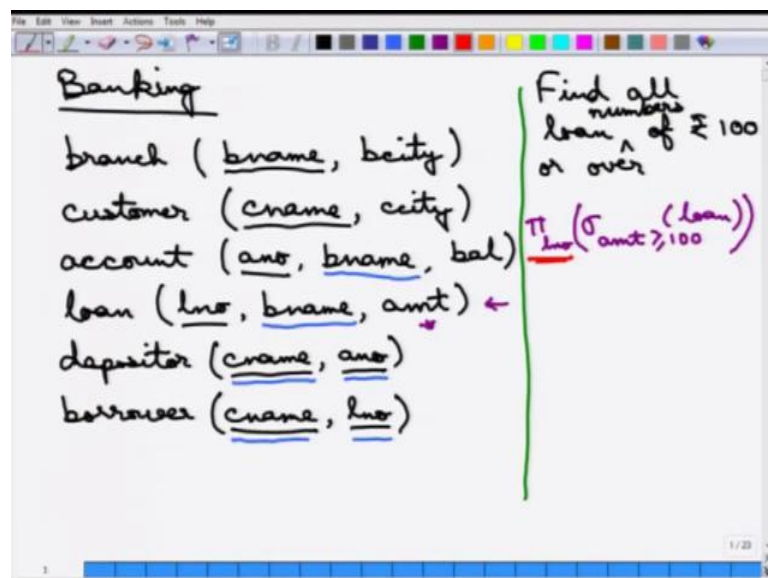 File Edit View Insert Actions Tools Help
Banking
branch ( bname, bcity)
customer (cname, ccity)
account (ano, bname, bal)
loan (lno, bname, amt) ←
depositor (cname, ano)
borrower (cname, lno)
Find all
loan numbers of ₹ 100
or over
π lno (σ amt ≥ 100 (loan))
1 / 23
1